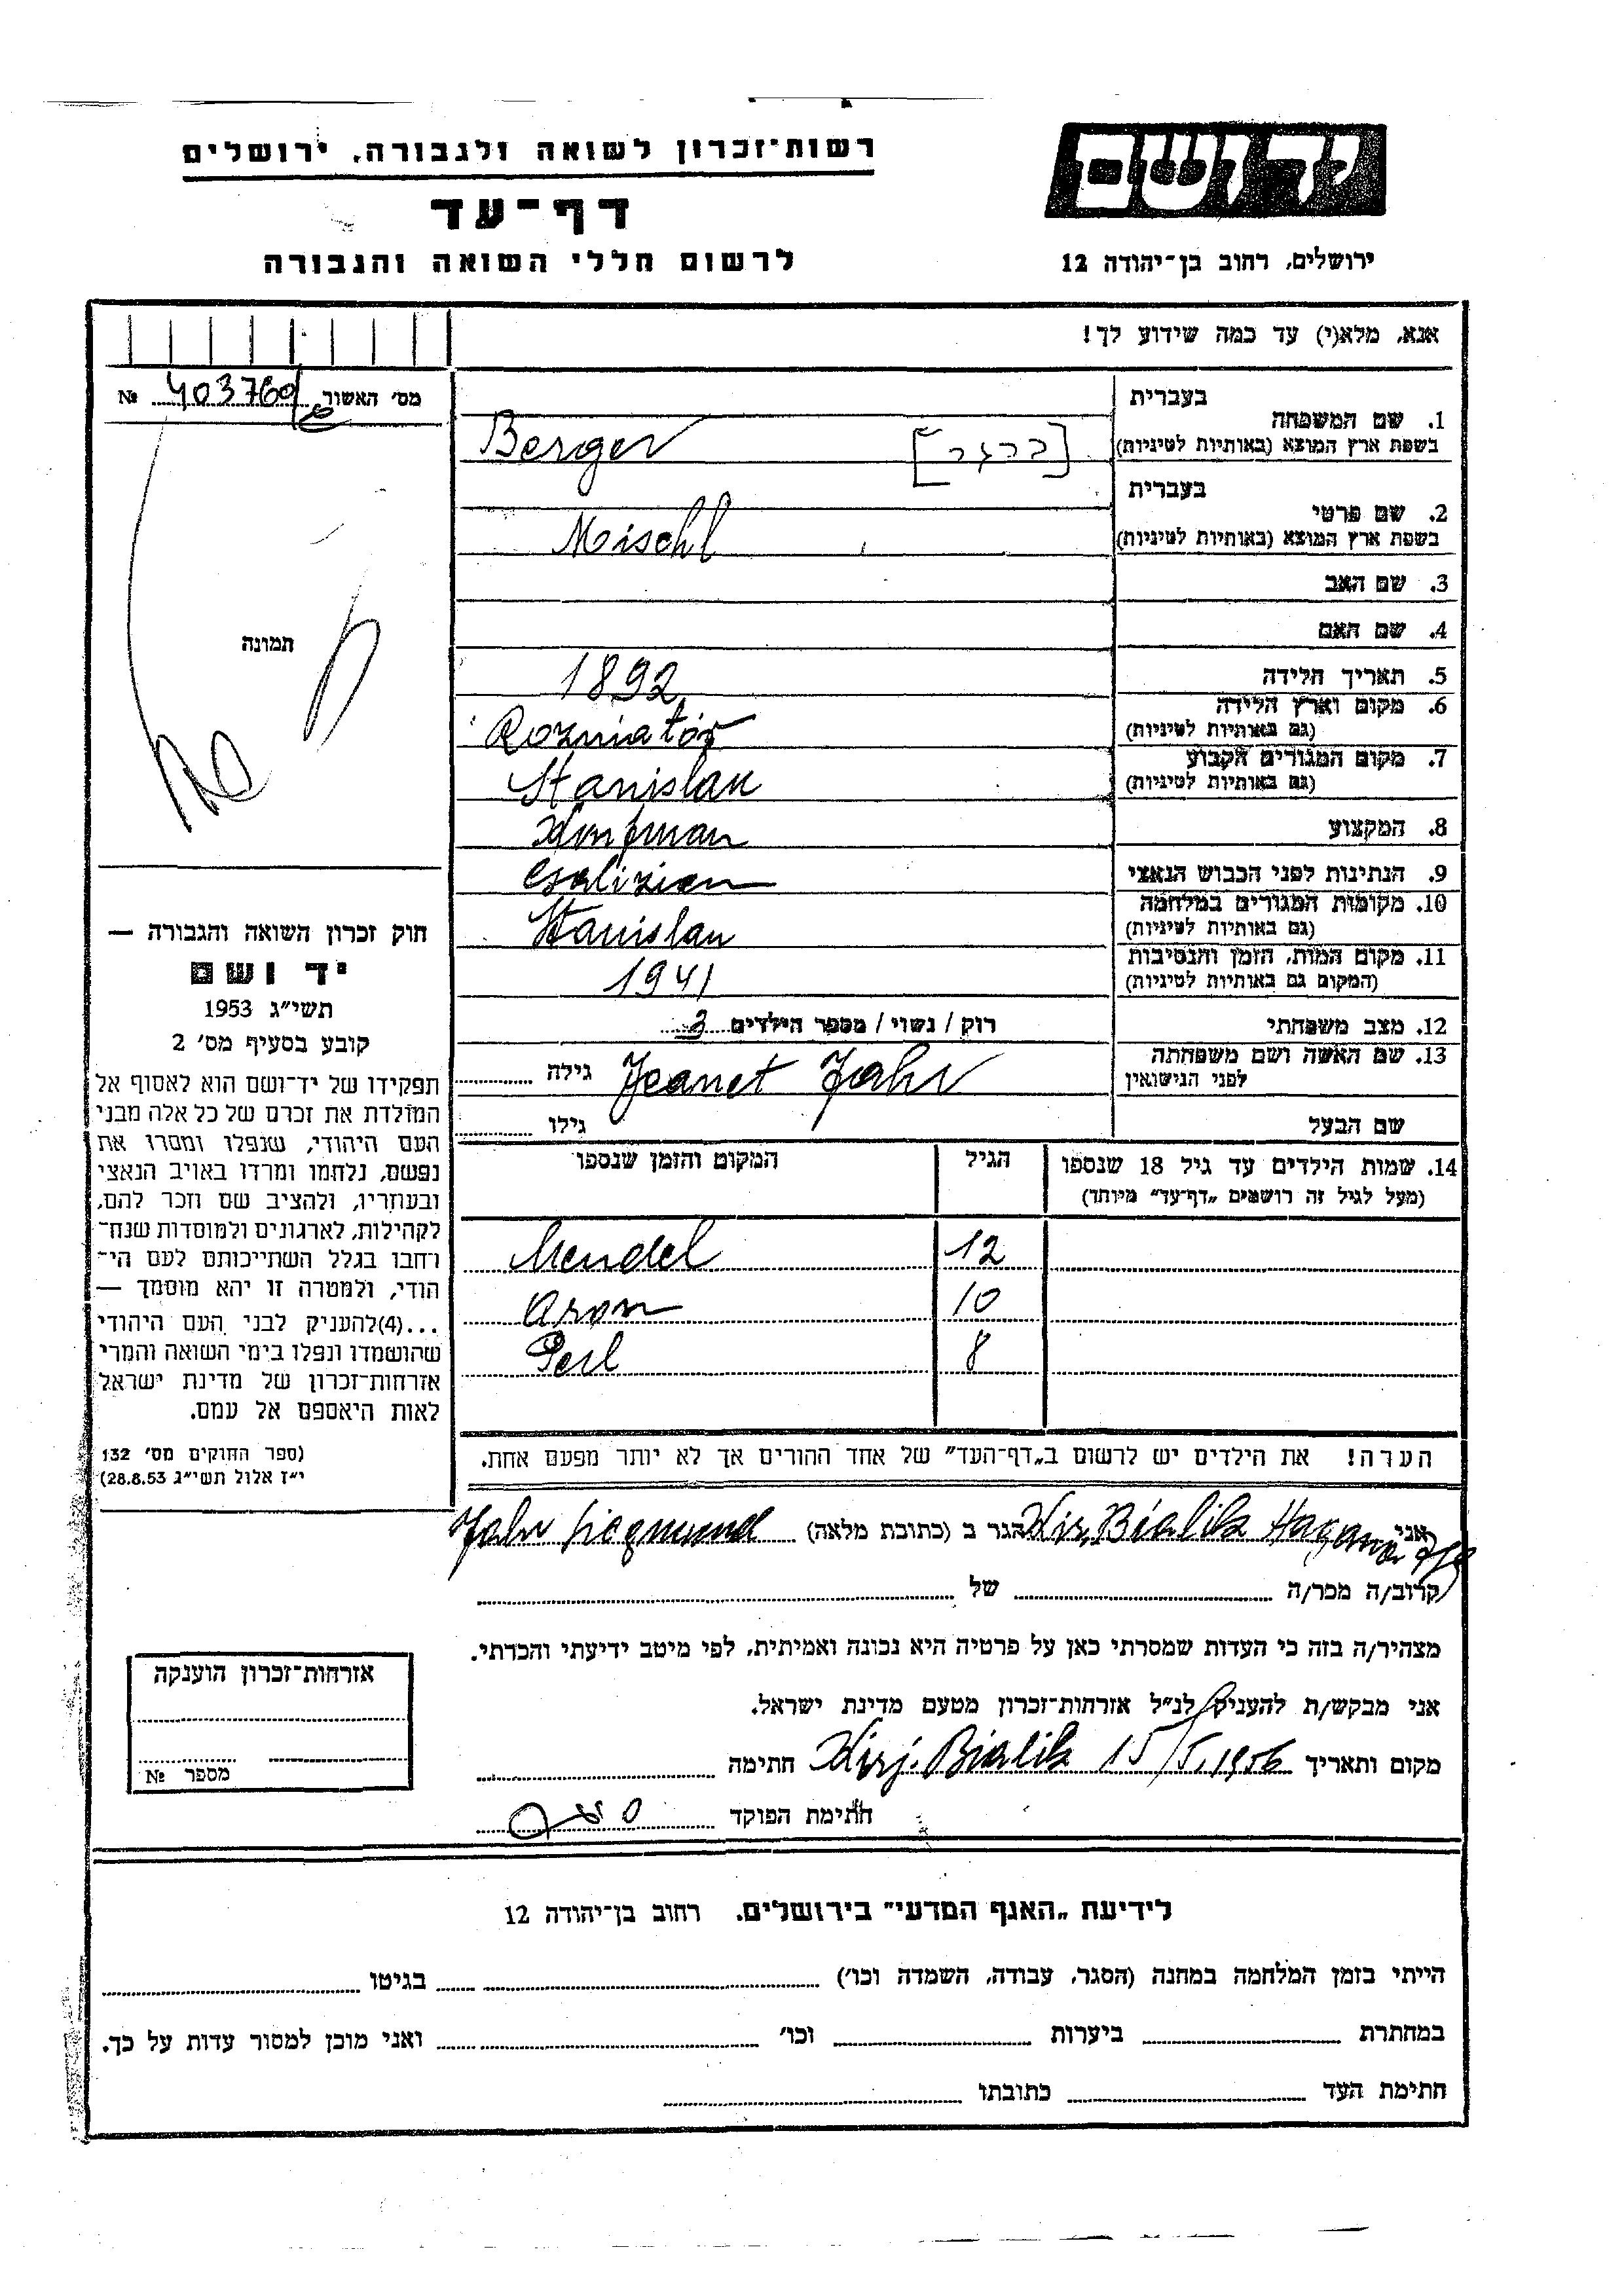 יד ושם
ירושלים, רחוב בן־יהודה 12
רשות־זכרון לשואה ולגבורה, ירושלים
דף־עד
לרשום חללי השואה והגבורה
אנא, מלא(י) עד כמה שידוע לך!
מס׳ האשור № 403760
תמונה
1. שם המשפחה
בעברית
בשפת ארץ המוצא (באותיות לטיניות) Berger [ברגר]
2. שם פרטי
בעברית
בשפת ארץ המוצא (באותיות לטיניות) Meischl
3. שם האב
4. שם האם
5. תאריך הלידה 1892
6. מקום וארץ הלידה
(גם באותיות לטיניות) Rozniatów
7. מקום המגורים הקבוע
(גם באותיות לטיניות) Stanislau
8. המקצוע Kaufman
9. הנתינות לפני הכבוש הנאצי Galizien
10. מקומות המגורים במלחמה
(גם באותיות לטיניות) Stanislau
11. מקום המות, הזמן והנסיבות
(המקום גם באותיות לטיניות) 1941
12. מצב משפחתי רוק / נשוי / מספר הילדים 3
13. שם האשה ושם משפחתה
לפני הנישואין Jeanet Jahr גילה
שם הבעל גילו
14. שמות הילדים עד גיל 18 שנספו הגיל המקום והזמן שנספו
(מעל לגיל זה רושמים „דף־עד” מיוחד)
12 Mendel
10 Aron
8 Perl
הערה! את הילדים יש לרשום ב„דף־העד” של אחד ההורים אך לא יותר מפעם אחת.
חוק זכרון השואה והגבורה —
יד ושם
תשי״ג 1953
קובע בסעיף מס׳ 2
תפקידו של יד־ושם הוא לאסוף אל
המולדת את זכרם של כל אלה מבני
העם היהודי, שנפלו ומסרו את
נפשם, נלחמו ומרדו באויב הנאצי
ובעוזריו, ולהציב שם וזכר להם,
לקהילות, לארגונים ולמוסדות שנח־
רחבו בגלל השתייכותם לעם הי־
הודי, ולמטרה זו יהא מוסמך —
...(4)להעניק לבני העם היהודי
שהושמדו ונפלו בימי השואה והמרי
אזרחות־זכרון של מדינת ישראל
לאות היאספם אל עמם.
(ספר החוקים מס׳ 132
י״ז אלול תשי״ג 28.8.53)
אני Kir. Bialik Hagana הגר ב (כתובת מלאה) Jahr Siegmund
קרוב/ה מכר/ה של
מצהיר/ה בזה כי העדות שמסרתי כאן על פרטיה היא נכונה ואמיתית, לפי מיטב ידיעתי והכרתי.
אני מבקש/ת להעניק לנ״ל אזרחות־זכרון מטעם מדינת ישראל.
מקום ותאריך Kirj. Bialik 15/5.1956 חתימה
חתימת הפוקד
אזרחות־זכרון הוענקה
מספר №
לידיעת „האגף המדעי” בירושלים. רחוב בן־יהודה 12
הייתי בזמן המלחמה במחנה (הסגר, עבודה, השמדה וכו׳) בגיטו
במחתרת ביערות וכו׳ ואני מוכן למסור עדות על כך.
חתימת העד כתובתו